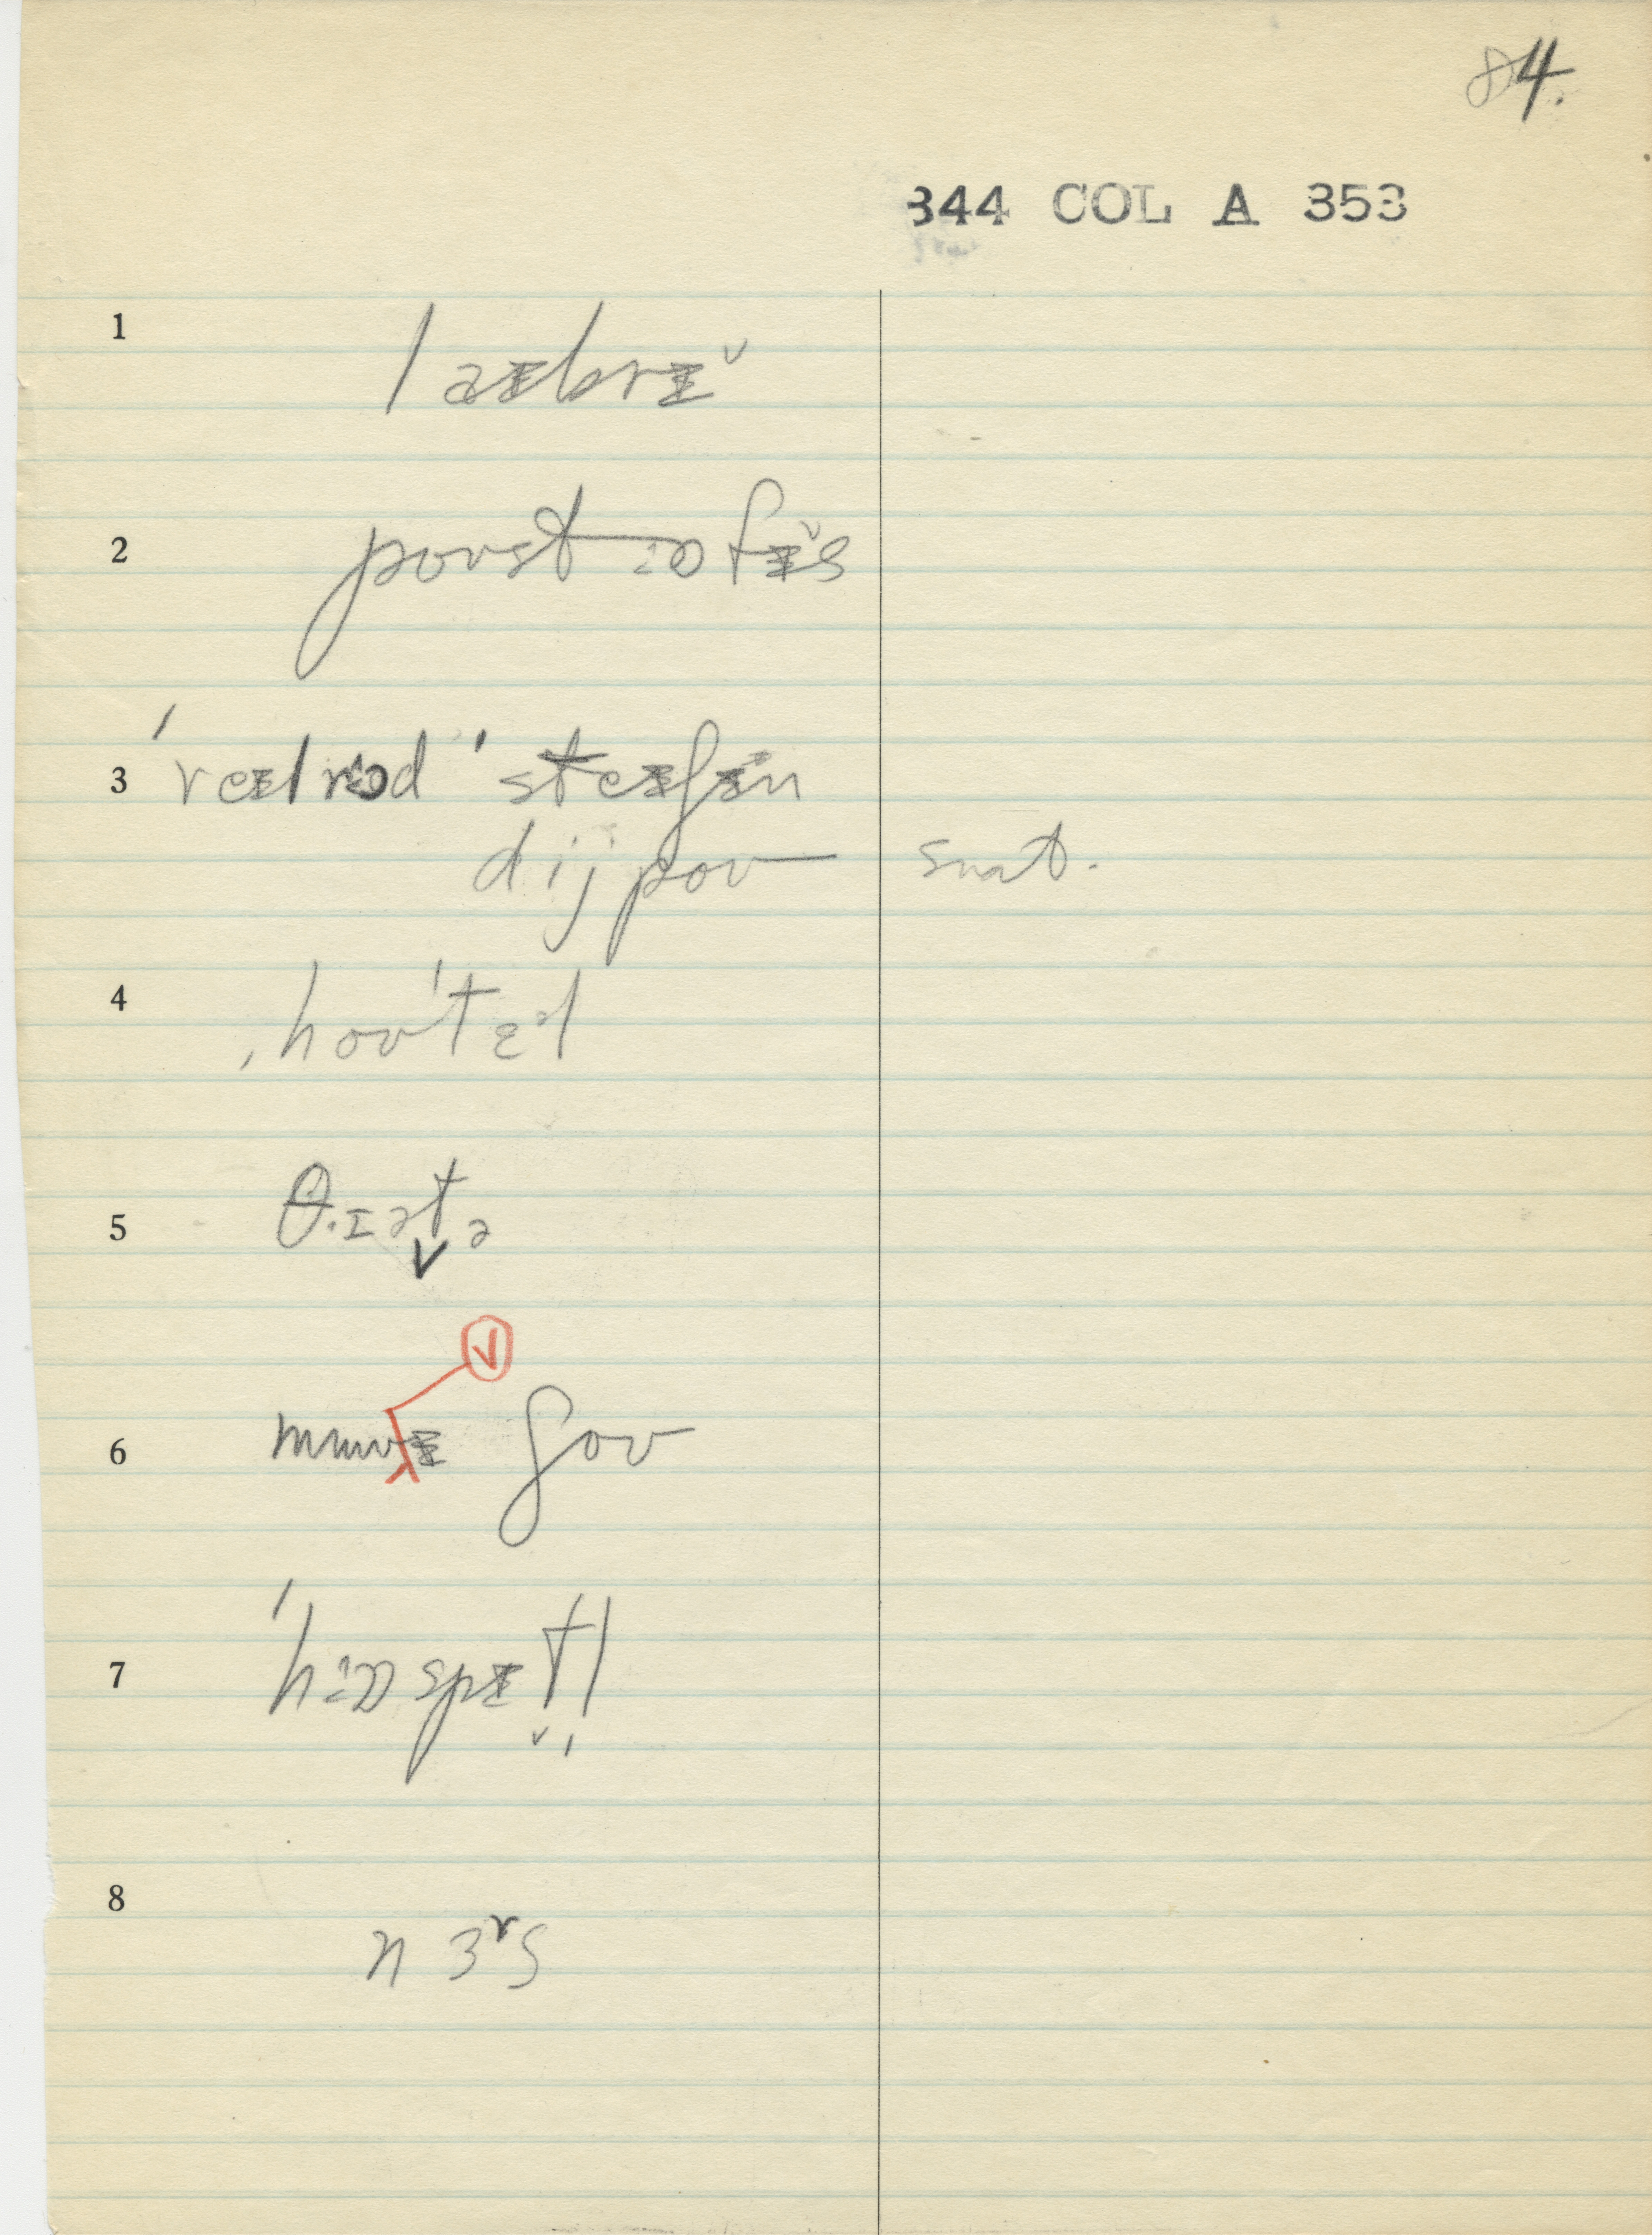 84.
344 COL A 353
1 laɪbrɪ̌
2 poʊst ɔfɪ̌s
3 ˈreɪlrod ˈsteɪʃɪ̌n
dijpoʊ snat.
4 ˌhoʊˈtɛəl
5 θ.ɪətə
6 muvɪ ʃoʊ
7 ˈhɪɔspɪtl
8 nɜrs